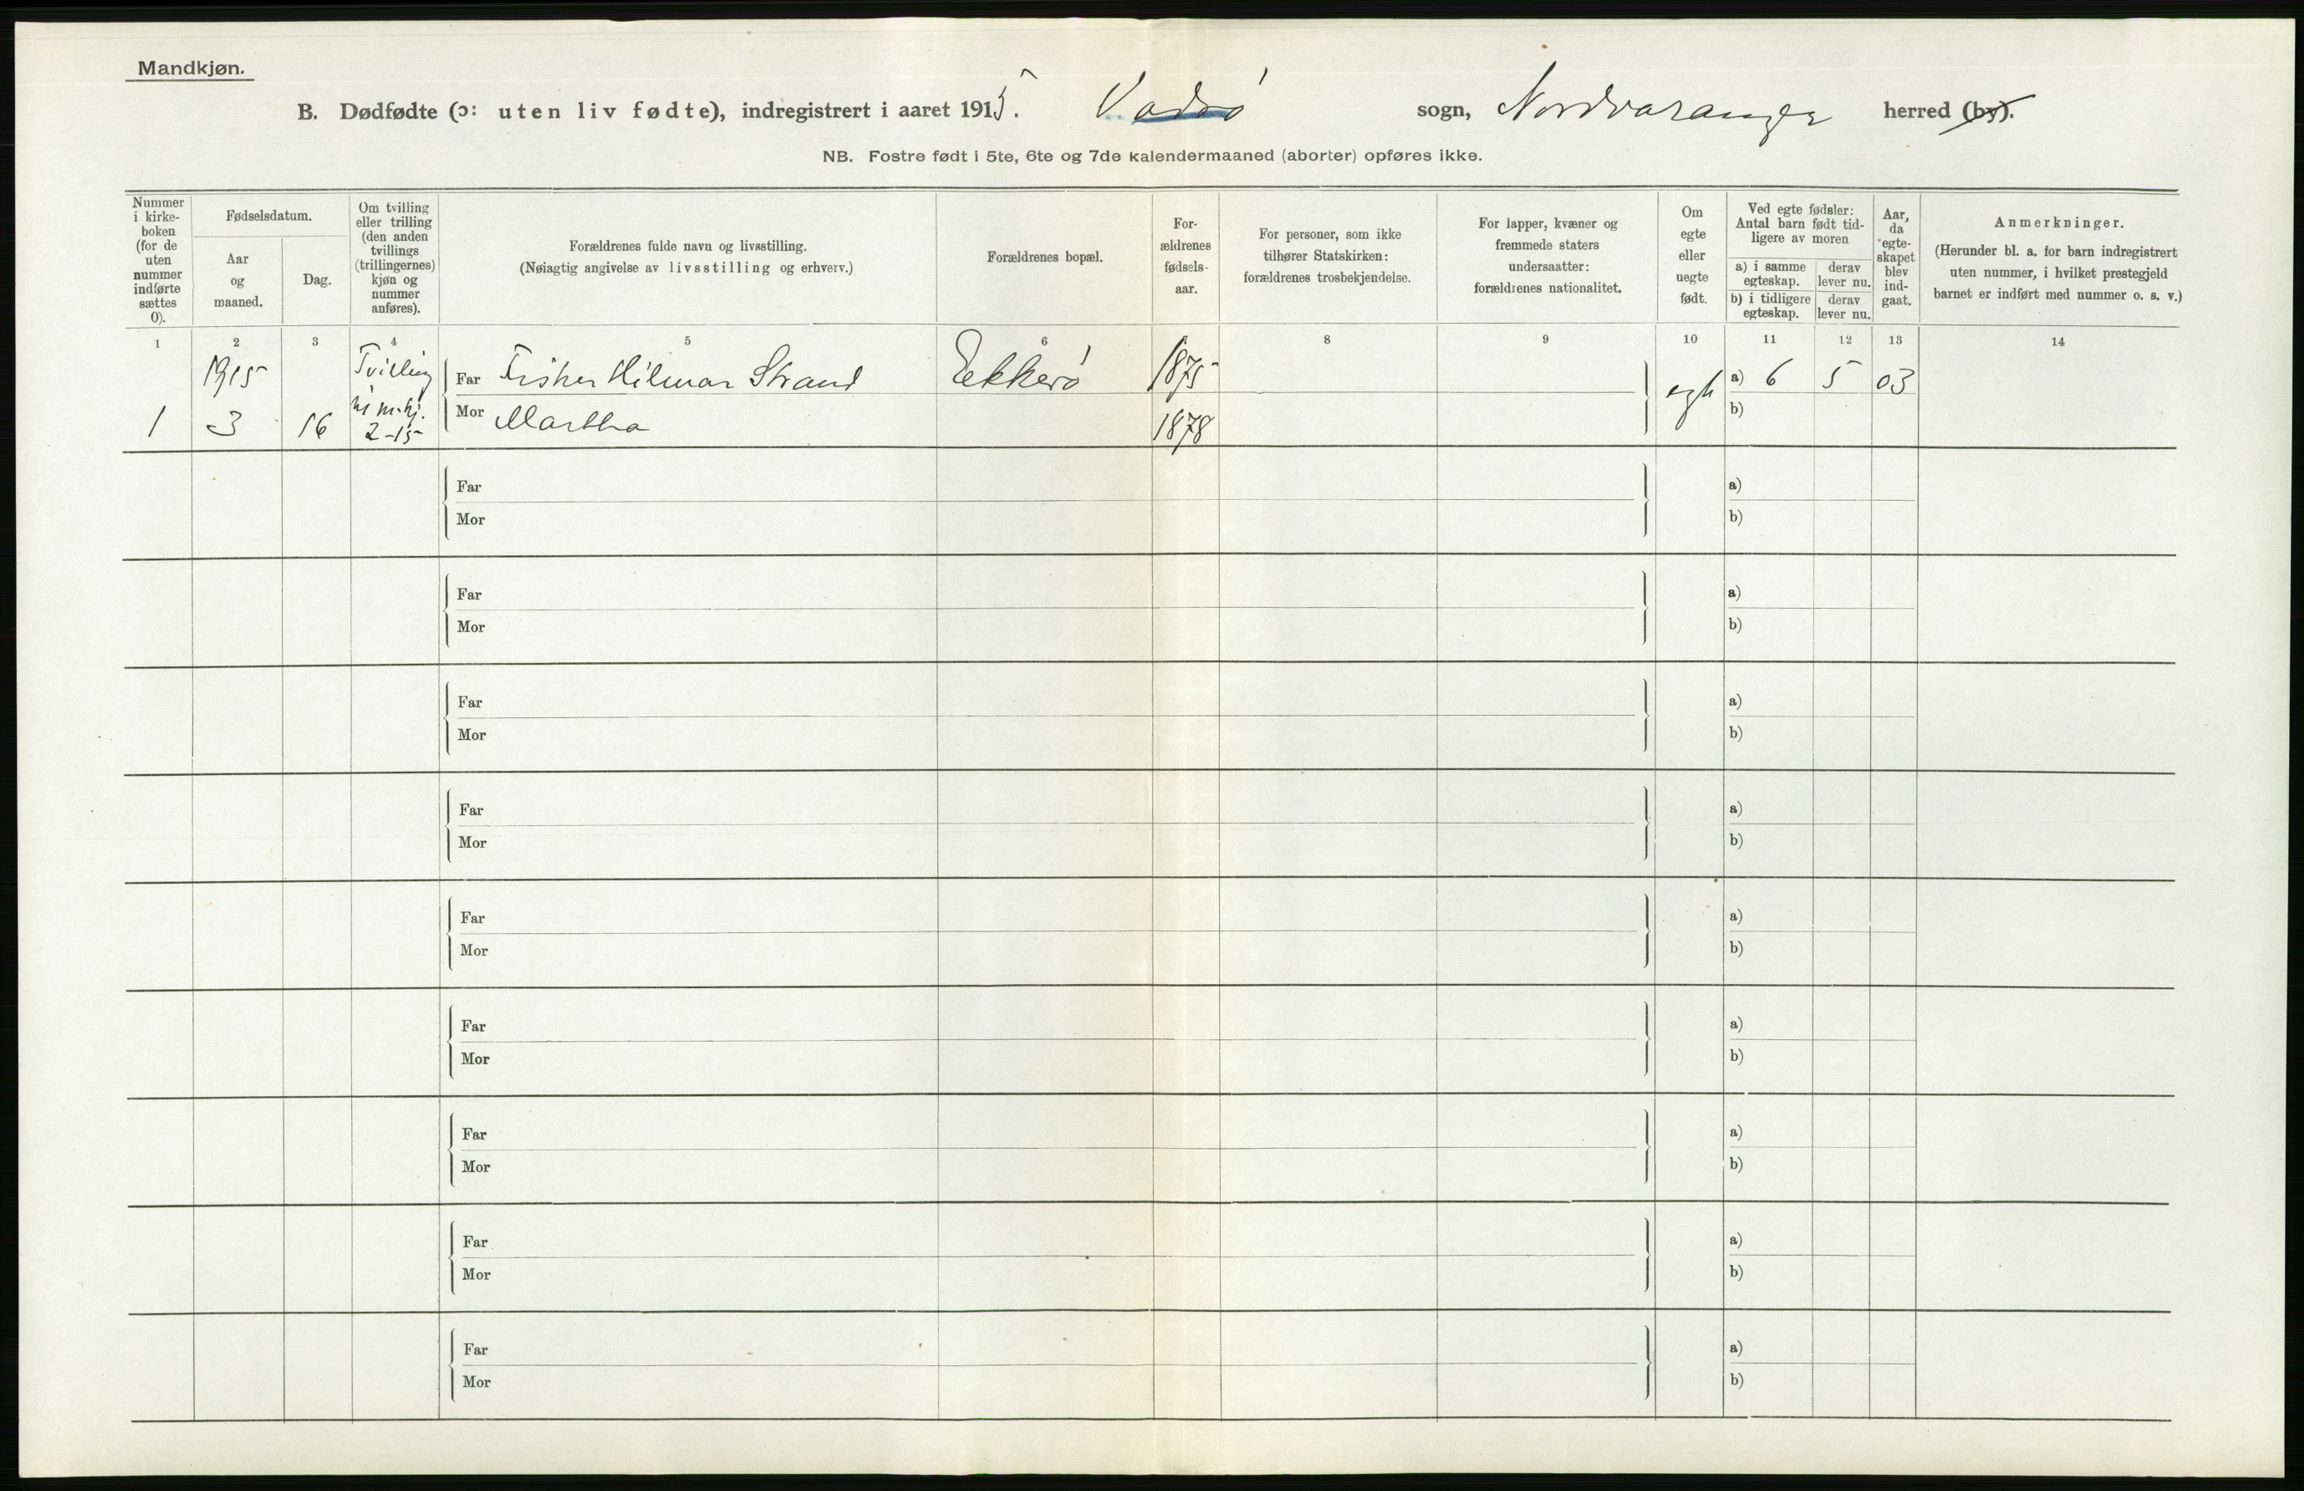 Mandkjøn.
B. Dødfødte (ɔ: uten liv fødte), indregistrert i aaret 1915. Vadsø sogn, Nordvaranger herred (by).
NB. Fostre født i 5te, 6te og 7de kalendermaaned (aborter) opføres ikke.
Nummer i kirke-boken (for de uten nummer indførte sættes 0).
Fødselsdatum.
Aar og maaned.
Dag.
Om tvilling eller trilling (den anden tvillings (trillingernes) kjøn og nummer anføres).
Forældrenes fulde navn og livsstilling.
(Nøiagtig angivelse av livsstilling og erhverv.)
Forældrenes bopæl.
For-ældrenes fødsels-aar.
For personer, som ikke tilhører Statskirken: forældrenes trosbekjendelse.
For lapper, kvæner og fremmede staters undersaatter: forældrenes nationalitet.
Om egte eller uegte født.
Ved egte fødsler: Antal barn født tid-ligere av moren
a) i samme egteskap.
derav lever nu.
b) i tidligere egteskap.
derav lever nu.
Aar, da egte-skapet blev ind-gaat.
Anmerkninger.
(Herunder bl. a. for barn indregistrert uten nummer, i hvilket prestegjeld barnet er indført med nummer o. s. v.)
1 2 3 4 5 6 7 8 9 10 11 12 13 14
1915 Tvilling Far Fisker Hilmar Strand Ekkerø 1875 egte a) 6 5 03
1 3 16 til m.kj. 2-15 Mor Martha 1878 b)
Far a)
Mor b)
Far a)
Mor b)
Far a)
Mor b)
Far a)
Mor b)
Far a)
Mor b)
Far a)
Mor b)
Far a)
Mor b)
Far a)
Mor b)
Far a)
Mor b)